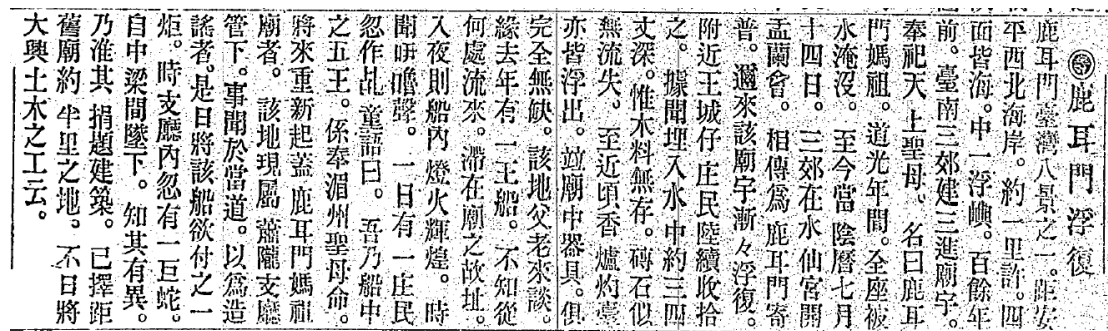 鹿耳門浮復
鹿耳門臺灣八景之一。距安
平西北海岸。約一里許。四
面皆海。中一浮嶼。百餘年
前。臺南三郊建三進廟宇。
奉祀天上聖母。名曰鹿耳
門媽祖。道光年間。全座被
水淹沒。至今當陰曆七月
十四日。三郊在水仙宮開
盂蘭會。相傳爲鹿耳門寄
普。邇來該廟宇漸々浮復。
附近王城仔庄民陸續收拾
之。據聞埋入水中約三四
丈深。惟木料無存。磚石似
無流失。至近頃香爐灼臺
亦皆浮出。竝廟中器具。俱
完全無缺。該地父老來談。
緣去年有一王船。不知從
何處流來。滯在廟之故址。
入夜則船內燈火輝煌。時
聞聲。一日有一庄民
忽作乩童語曰。吾乃船中
之五王。係奉湄州聖母命。
將來重新起蓋鹿耳門媽祖
廟者。該地現屬蕭壠支廳
管下。事聞於當道。以爲造
謠者。是日將該船欲付之一
炬。時支廳內忽有一巨蛇。
自中梁間墜下。知其有異。
乃准其捐題建築。已擇距
舊廟約半里之地。不日將
大興土木之工云。